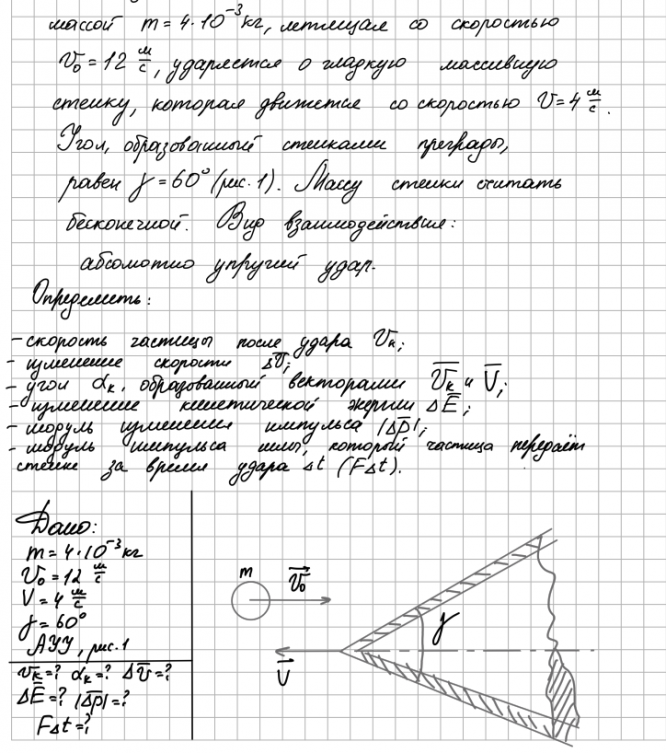 массой m = 4·10⁻³ кг, летящая со скоростью
v₀ = 12 м/с, ударяется о гладкую массивную
стенку, которая движется со скоростью V = 4 м/с.
Угол, образованный стенками преграды,
равен γ = 60° (рис. 1). Массу стенки считать
бесконечной. Вид взаимодействия:
абсолютно упругий удар.
Определить:
- скорость частицы после удара v̅ₖ;
- изменение скорости Δv̅;
- угол αₖ, образованный векторами v̅ₖ и V̅;
- изменение кинетической энергии ΔE̅;
- модуль изменения импульса |Δp̅|;
- модуль импульса силы, который частица передаёт
стенке за время удара Δt (FΔt).
Дано:
m = 4·10⁻³ кг
v₀ = 12 м/с
V = 4 м/с
γ = 60°
АУУ, рис. 1
v̅ₖ = ? αₖ = ? Δv̅ = ?
ΔE̅ = ? |Δp̅| = ?
FΔt = ?
m
v⃗₀
γ
V̅